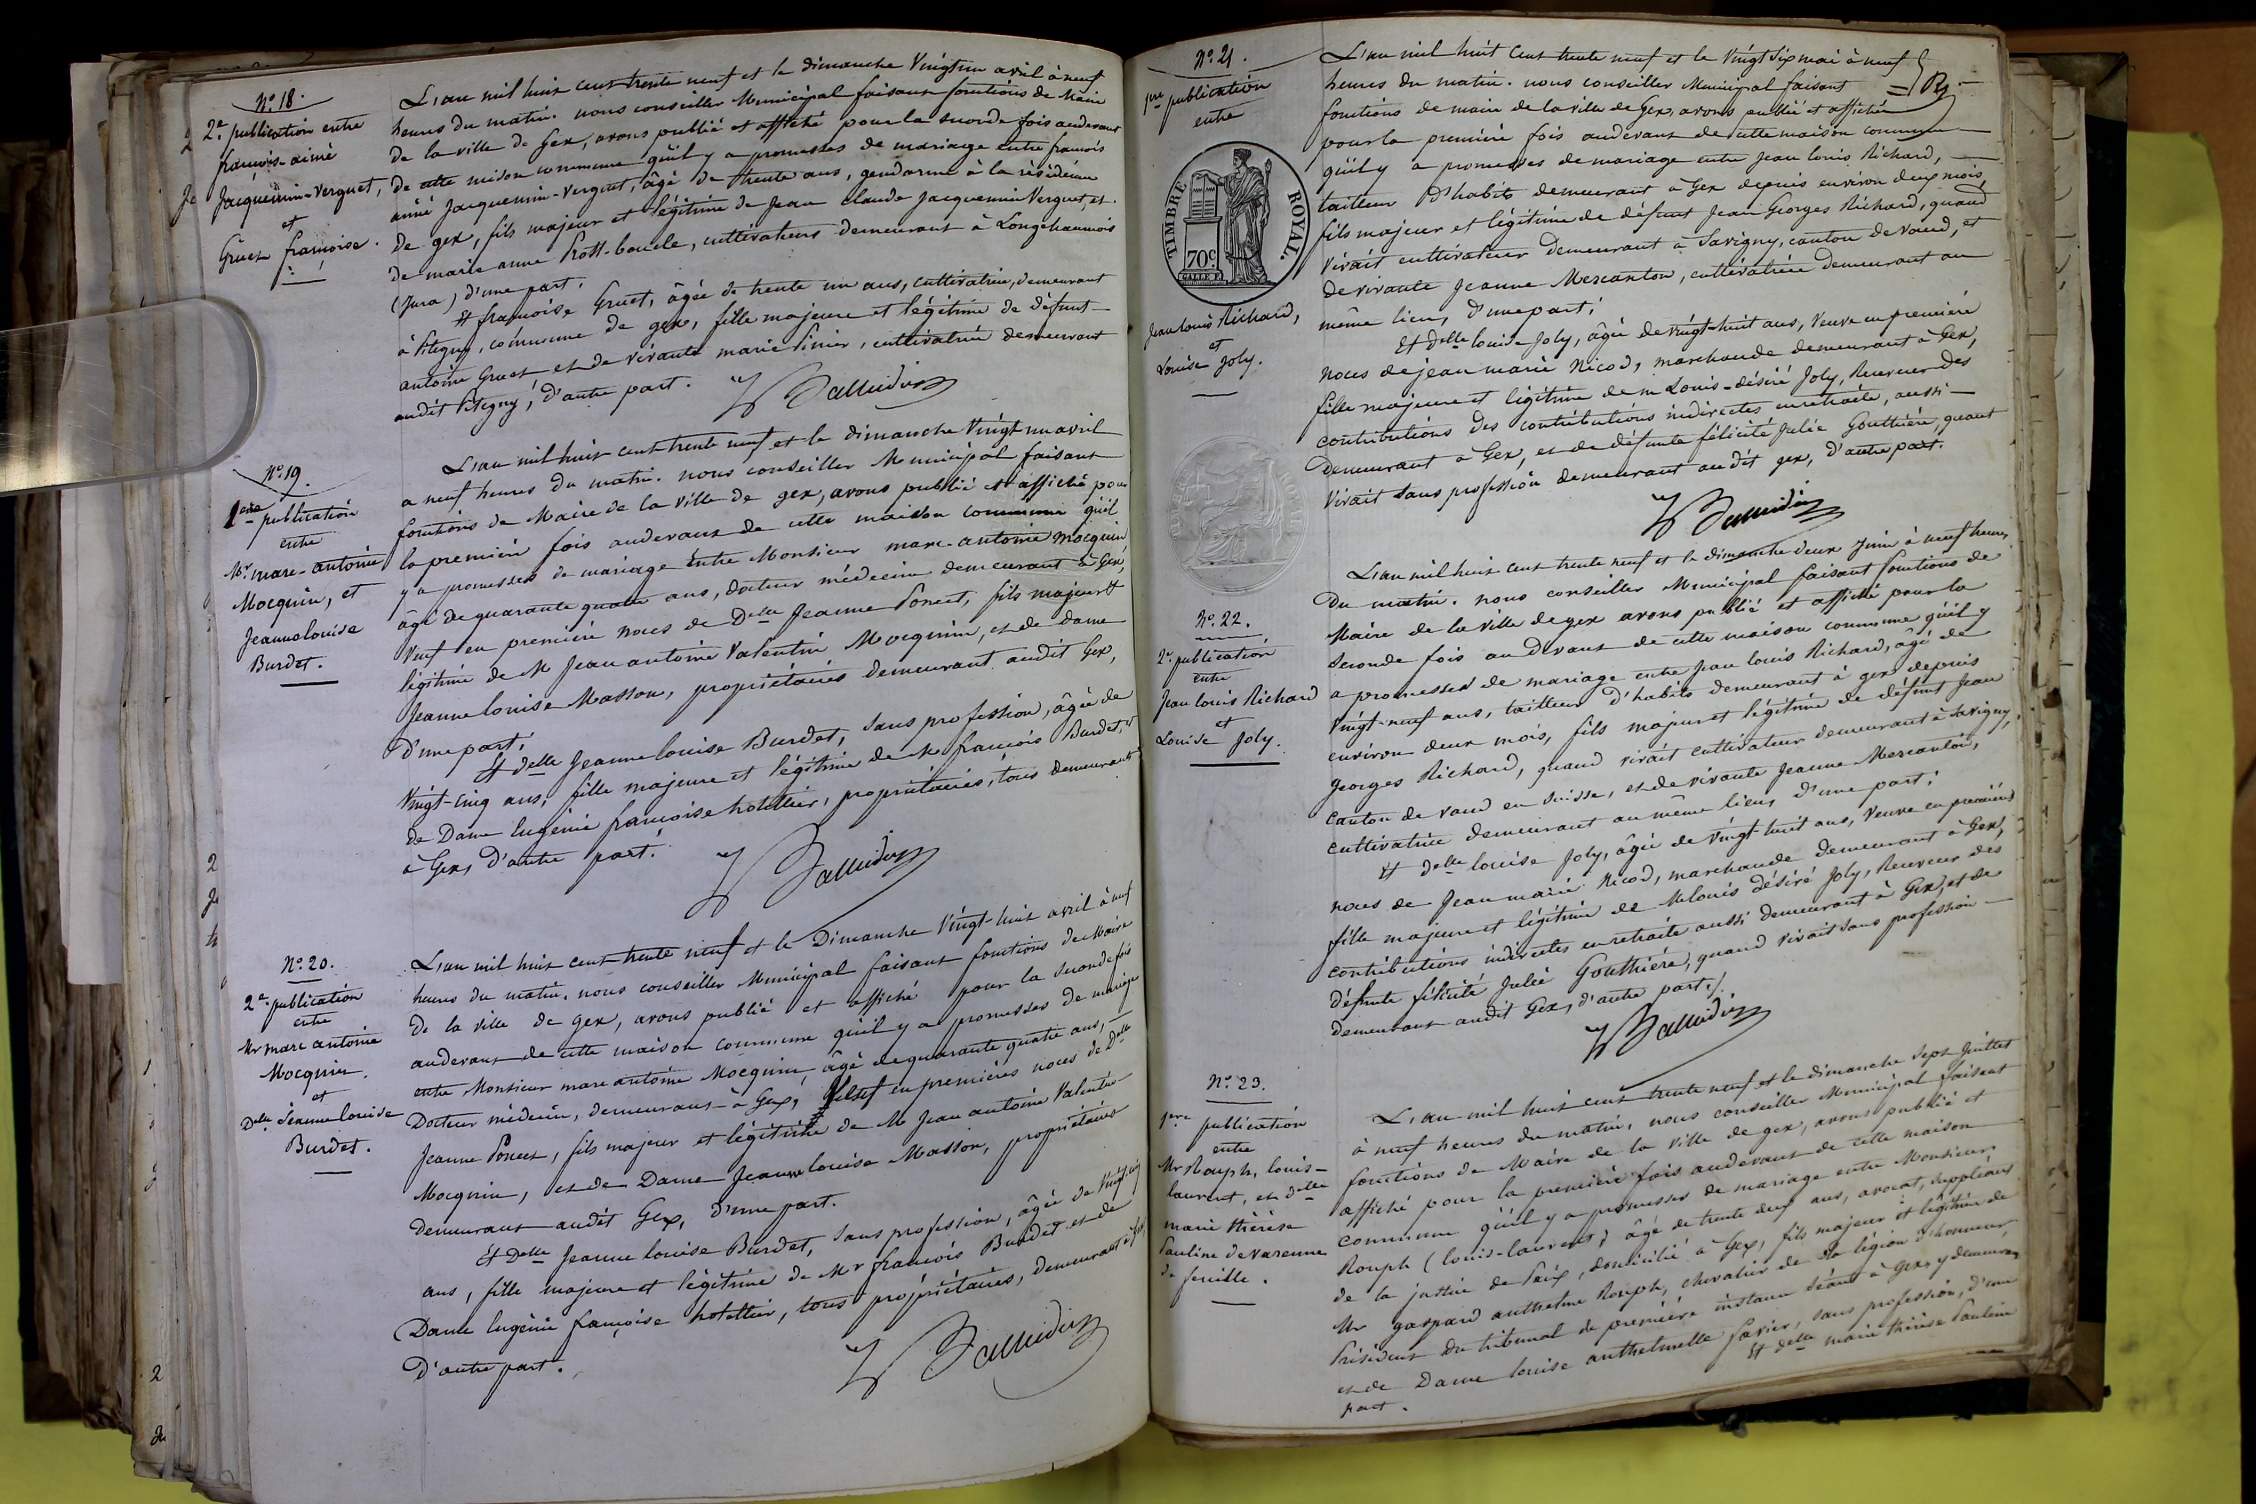 N.º 18.
2.e publication entre
françois-aimé
Jacquemin-Verguet,
et
Gruet françoise.
L'an mil huit cent trente neuf et le dimanche Vingt un avril à neuf
heures du matin. nous conseiller Municipal faisant fonctions de Maire
de la ville de Gex, avons publié et affiché pour la seconde fois audevant
de cette maison commune qu'il y a promesses de mariage entre françois
aimé Jacquemin-Verguet, âgé de trente ans, gendarme à la résidence
de gex, fils majeur et légitime de Jean claude Jacquemin Verguet, et
de marie anne Prost-boucle, cultivateurs demeurant à Longchaumois
(Jura) d'une part.
Et françoise Gruet, âgée de trente un ans, cultivatrice, demeurant
à Pitegny, commune de gex, fille majeure et légitime de défunt
antoine Gruet et de vivante marie Pinier, cultivatrice demeurant
audit Pitegny, d'autre part.
N.º 19.
1ere publication
entre
Mr. marc-antoine
Mocquin, et
Jeanne louise
Burdet.
L'an mil huit cent trente neuf et le dimanche Vingt un avril
a neuf heures du matin. nous conseiller Municipal faisant
fonctions de Maire de la ville de gex, avons publié et affiché pour
la première fois audevant de cette maison commune qu'il
y a promesses de mariage entre Monsieur marc-antoine Mocquin
âgé de quarante quatre ans, docteur médecin demeurant à Gex,
Veuf en première noces de Delle Jeanne Poncet, fils majeur et
légitime de M Jean antoine Valentin Mocquin, et de dame
Jeanne louise Masson, propriétaires demeurant audit Gex,
d'une part.
Et delle Jeanne louise Burdet, sans profession, âgée de
Vingt-cinq ans, fille majeure et légitime de M françois Burdet, et
de Dame Eugénie françoise hotellier, propriétaires, tous demeurant
à Gex, d'autre part.
N.º 20.
2e. publication
entre
Mr marc antoine
Mocquin.
et
Delle Jeanne louise
Burdet.
L'an mil huit cent trente neuf et le Dimanche Vingt-huit avril à neuf
heures du matin. nous conseiller Municipal faisant fonctions de Maire
de la ville de gex, avons publié et affiché pour la seconde fois
audevant de cette maison commune qu'il y a promesses de mariage
entre Monsieur marc antoine Mocquin, âgé de quarante quatre ans,
Docteur médecin, demeurant à Gex, Veuf en premières noces de Delle
Jeanne Poncet, fils majeur et légitime de M Jean antoine Valentin
Mocquin, et de Dame Jeanne louise Masson, propriétaires
demeurant audit Gex, d'une part.
Et Delle Jeanne louise Burdet, sans profession, âgée de Vingt cinq
ans, fille majeure et légitime de Mr françois Burdet et de
Dame Eugénie françoise hotellier, tous propriétaires, demeurant à Gex
d'autre part.
N.º 21.
1ere publication
entre
TIMBRE ROYAL.
70c
Jean louis Richard,
et
Louise Joly.
L'an mil huit cent trente neuf et le Vingt six mai à neuf
heures du matin. nous conseiller Municipal faisant
fonctions de maire de la ville de Gex, avons publié et affiché
pour la première fois audevant de cette maison commune
qu'il y a promesses de mariage entre Jean louis Richard,
tailleur d'habits demeurant à Gex depuis environ deux mois,
fils majeur et légitime de défunt Jean Georges Richard, quand
vivait cultivateur demeurant à Savigny, canton de Vaud, et
de vivante Jeanne Mercanton, cultivatrice demeurant au
même lieu, d'une part;
Et delle louise Joly, âgée de vingt-huit ans, Veuve en première
noces de jean marie Nicod, marchande demeurant à Gex,
fille majeure et légitime de m Louis-désiré Joly, Receveur des
contributions des contributions indirectes en retraite, aussi
demeurant à Gex, et de défunte félicité Julie Gouttière, quant
vivait sans profession demeurant au dit gex, d'autre part.
N.º 22.
2e. publication
entre
Jean louis Richard
et
Louise Joly.
L'an mil huit cent trente neuf et le dimanche deux Juin à neuf heures
du matin. nous conseiller Municipal faisant fonctions de
Maire de la ville de gex avons publié et affiché pour la
seconde fois au devant de cette maison commune qu'il y
a promesses de mariage entre Jean louis Richard, âgé de
Vingt-neuf ans, tailleur d'habits demeurant à gex depuis
environ deux mois, fils majeur et légitime de défunt Jean
Georges Richard, quand vivait cultivateur demeurant à Savigny,
Canton de Vaud en Suisse, et de vivante Jeanne Mercanton,
cultivatrice demeurant au même lieu, d'une part;
Et delle louise Joly, âgée de Vingt-huit ans, Veuve en premières
noces de Jean marie Nicod, marchande demeurant à Gex,
fille majeure et légitime de M louis désiré Joly, Receveur des
contributions indirectes en retraite aussi demeurant à Gex, et de
défunte félicité Julie Gouthière, quand vivait sans profession
demeurant audit Gex, d'autre part.
N.º 23.
1ere publication
entre
Mr Rouph, louis-
laurent, et delle
marie thérèse
Pauline de Varenne
de feuille.
L'an mil huit cent trente neuf et le dimanche Sept Juillet
à neuf heures du matin, nous conseiller Municipal faisant
fonctions de Maire de la ville de gex, avons publié et
affiché pour la première fois audevant de cette maison
commune qu'il y a promesses de mariage entre Monsieur
Rouph (louis-laurent) âgé de trente deux ans, avocat, suppléant
de la justice de Paix, domicilié à Gex, fils majeur et légitime de
Mr gaspard anthelme Rouph, chevalier de la légion d'honneur,
Président du tribunal de première instance séant à Gex, y demeurant
et de Dame louise anthelmette favier, sans profession, d'une
part. Et delle marie thérèse Pauline